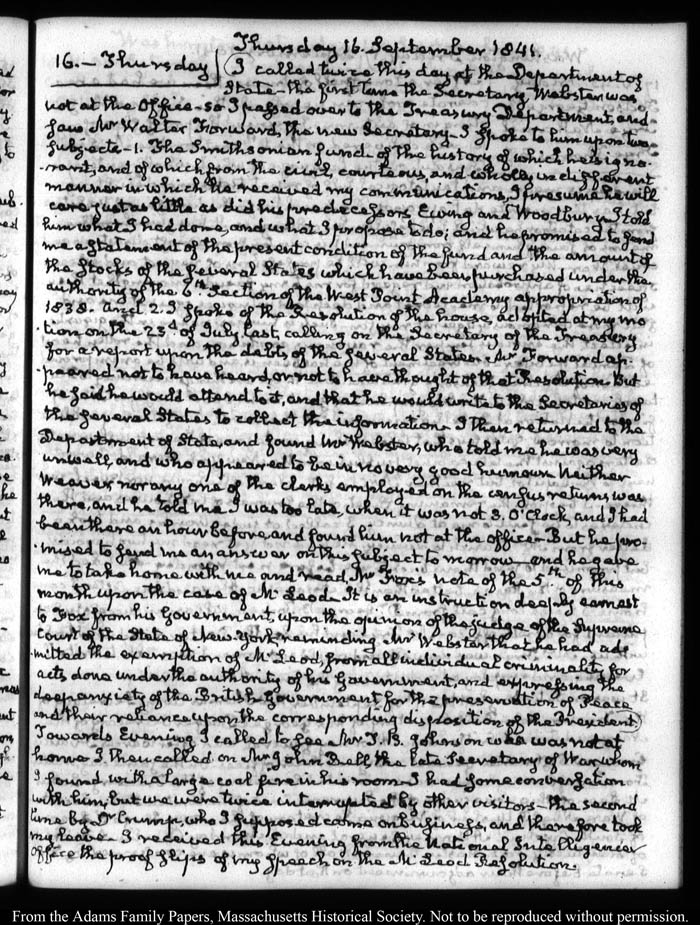 Thursday 16. September 1841.
16.— Thursday (I called twice this day at the Department of
State—the first time the Secretary Webster was
not at the Office—so I passed over to the Treasury Department, and
saw Mr Walter Forward, the new Secretary—I spoke to him upon two
subjects—1. The Smithsonian fund—of the history of which he is igno-
-rant, and of which, from the civil, courteous, and wholly indifferent
manner in which he received my communications, I presume he will
care just as little as did his predecessors Ewing and Woodbury. I told
him what I had done, and what I propose to do; and he promised to send
me a statement of the present condition of the fund and the amount of
the stocks of the several States which have been purchased under the
authority of the 6th Section of the West Point Academy appropriation of
1838. And 2. I spoke of the Resolution of the house, adopted at my mo-
tion on the 23d of July last, calling on the Secretary of the Treasury
for a report upon the debts of the several States. Mr Forward ap-
-peared not to have heard, or not to have thought of that Resolution. But
he said he would attend to it, and that he would write to the Secretaries of
the several States to collect the information—I then returned to the
Department of State, and found Mr Webster, who told me he was very
unwell, and who appeared to be in no very good humour. Neither
Weaver nor any one of the clerks employed on the census returns was
there, and he told me I was too late, when it was not 3. O'Clock, and I had
been there an hour before, and found him not at the office—But he pro-
-mised to send me an answer on this subject to morrow—and he gave
me to take home with me and read, Mr Fox's note of the 5th of this
month upon the case of McLeod. It is an instruction deeply earnest
to Fox from his Government, upon the opinion of the judge of the Supreme
Court of the State of New-York reminding Mr Webster that he had ad-
-mitted the exemption of McLeod, from all individual criminality, for
acts done under the authority of his Government, and expressing the
deep anxiety of the British Government for the preservation of Peace
and their reliance upon the corresponding disposition of the President)
Towards Evening I called to see Mr J. B. Johnson who was not at
home—I then called on Mr John Bell the late Secretary of War whom
I found with a large coal fire in his room—I had some conversation
with him, but we were twice interrupted by other visitors—the second
time by Dr Crump, who I supposed came on business, and therefore took
my leave—I received this Evening from the National Intelligencer
Office the proof slips of my speech on the McLeod Resolution.
From the Adams Family Papers, Massachusetts Historical Society. Not to be reproduced without permission.